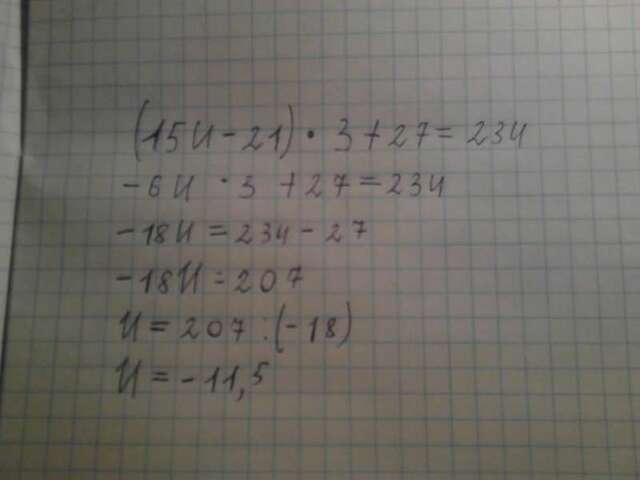 (15И-21)·3+27=234
-6И·3+27=234
-18И=234-27
-18И=207
И=207:(-18)
И=-11,5